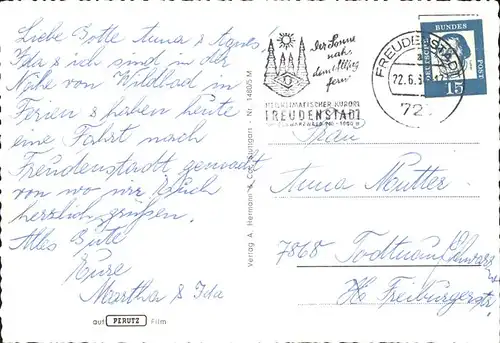 Liebe Dotte Anna & Agnes,
Ida & ich sind in der
Nähe von Wildbad in
Ferien & haben heute
eine Fahrt nach
Freudenstadt gemacht
von wo wir Euch
herzlich grüßen.
Alles Gute
Eure
Martha & Ida
auf PERUTZ Film
Verlag A. Hermann & Co., Stuttgart - Nr. 1480/5 M
Der Sonne
nah,
dem Alltag
fern!
HEILKLIMATISCHER KURORT
FREUDENSTADT
SCHWARZWALD 740 - 1000 M
FREUDENSTADT
22.6.
72
DEUTSCHE BUNDESPOST
15
Frau
Anna Mutter
7868 Todtnau/Schwarz
Freiburgerstr.